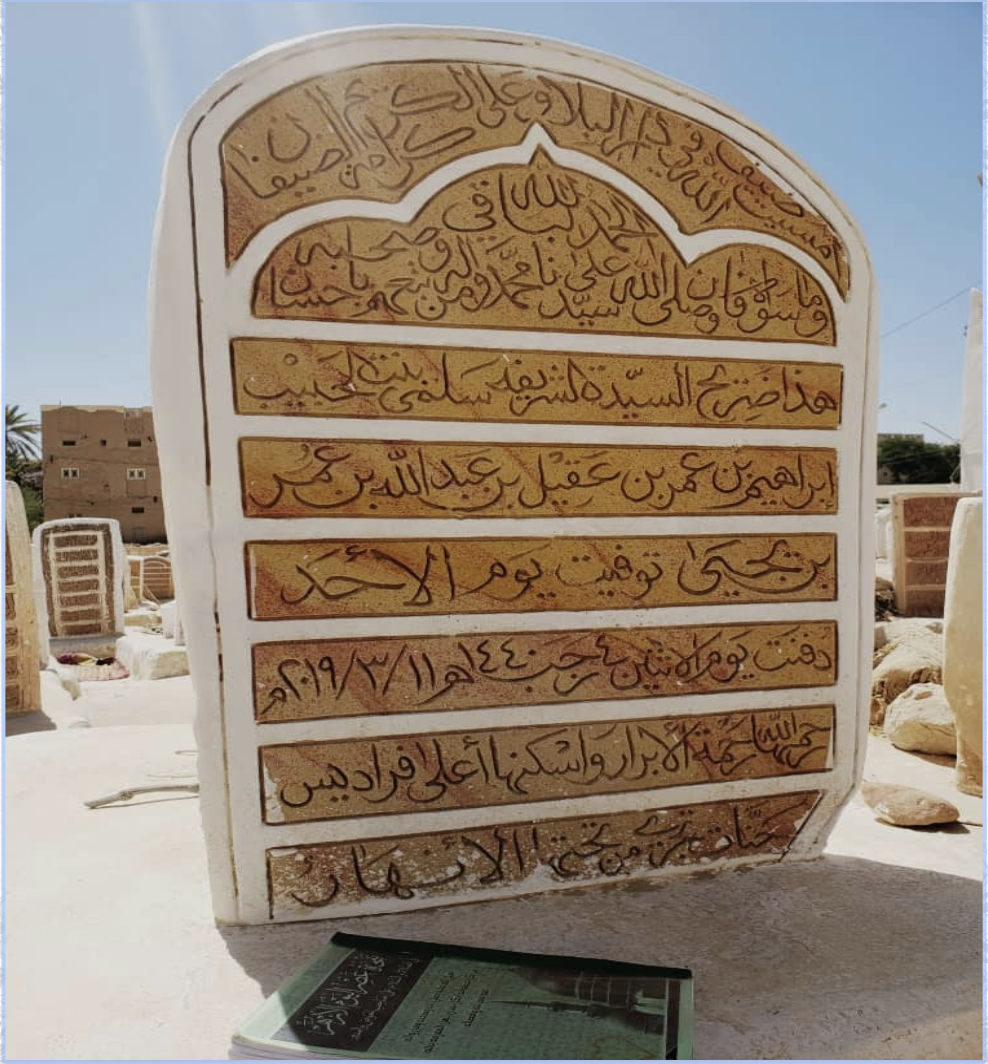 أمسيت ضيف الله في دار البلا وعلى الكريم كرامة الضيفان
الحمد لله الباقي
وما سواه فان وصلى الله على سيدنا محمد وآله وصحابه ومن نحهم باحسان
هذا ضريح السيدة الشريفه سلمى بنت الحبيب
ابراهيم بن عمر بن عقيل بن عبدالله بن عمر
بن يحيى توفيت يوم الأحد
دفنت يوم الاثنين ٤ رجب ١٤٤٠هـ ٢٠١٩/٣/١١م
رحمها الله رحمة الأبرار واسكنها أعلى فراديس
جنات تجري من تحتها الأنهار